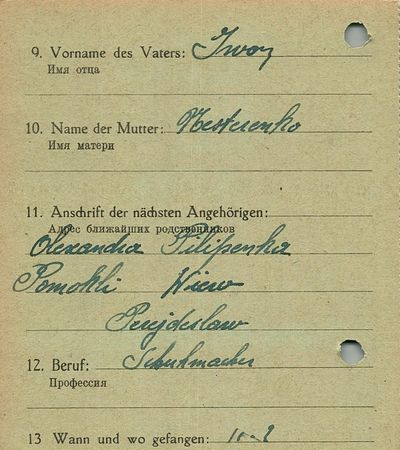 9. Vorname des Vaters: Iwan
Имя отца
10. Name der Mutter: Nesterenko
Имя матери
11. Anschrift der nächsten Angehörigen:
Адрес ближайших родственников
Olexandra Pilipenka
Pomokli Kiew
Perejdeslaw
12. Beruf: Schuhmacher
Профессия
13 Wann und wo gefangen: